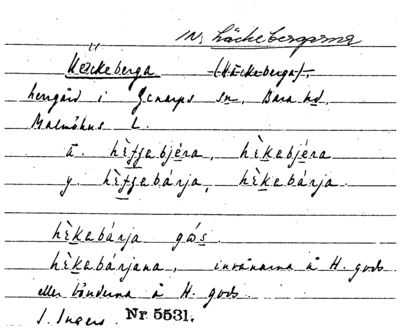 IN; Häckebergarna
Häckeberga (Häckeberga),
herrgård i Genarps sn, Bara hd,
Malmöhus L.
ä. hèfgebjéra, hèkebjéra
y. hèfgebárja, hèkebárja.
hèkebárja gás
hèkebárjana, invånarna å H. gods
eller bönderna å H. gods.
I. Ingers. Nr 5531.